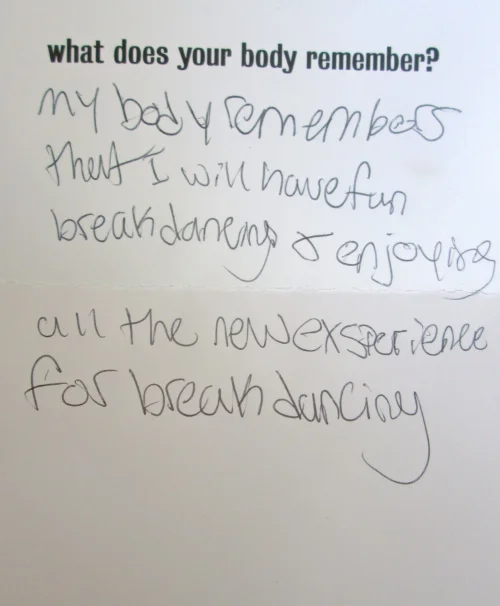 what does your body remember?
my body remembers
that I will have fun
breakdancing & enjoying
all the new exsperience
for breakdancing